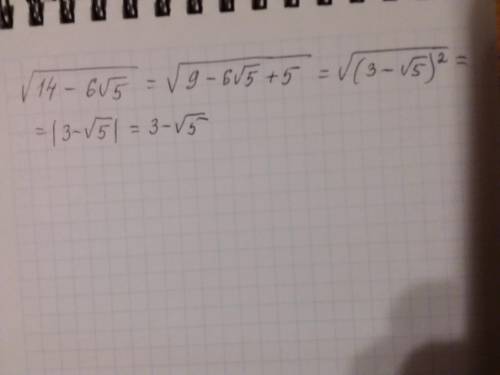 √(14 − 6√5) = √(9 − 6√5 + 5) = √((3 − √5)²) =
= |3 − √5| = 3 − √5